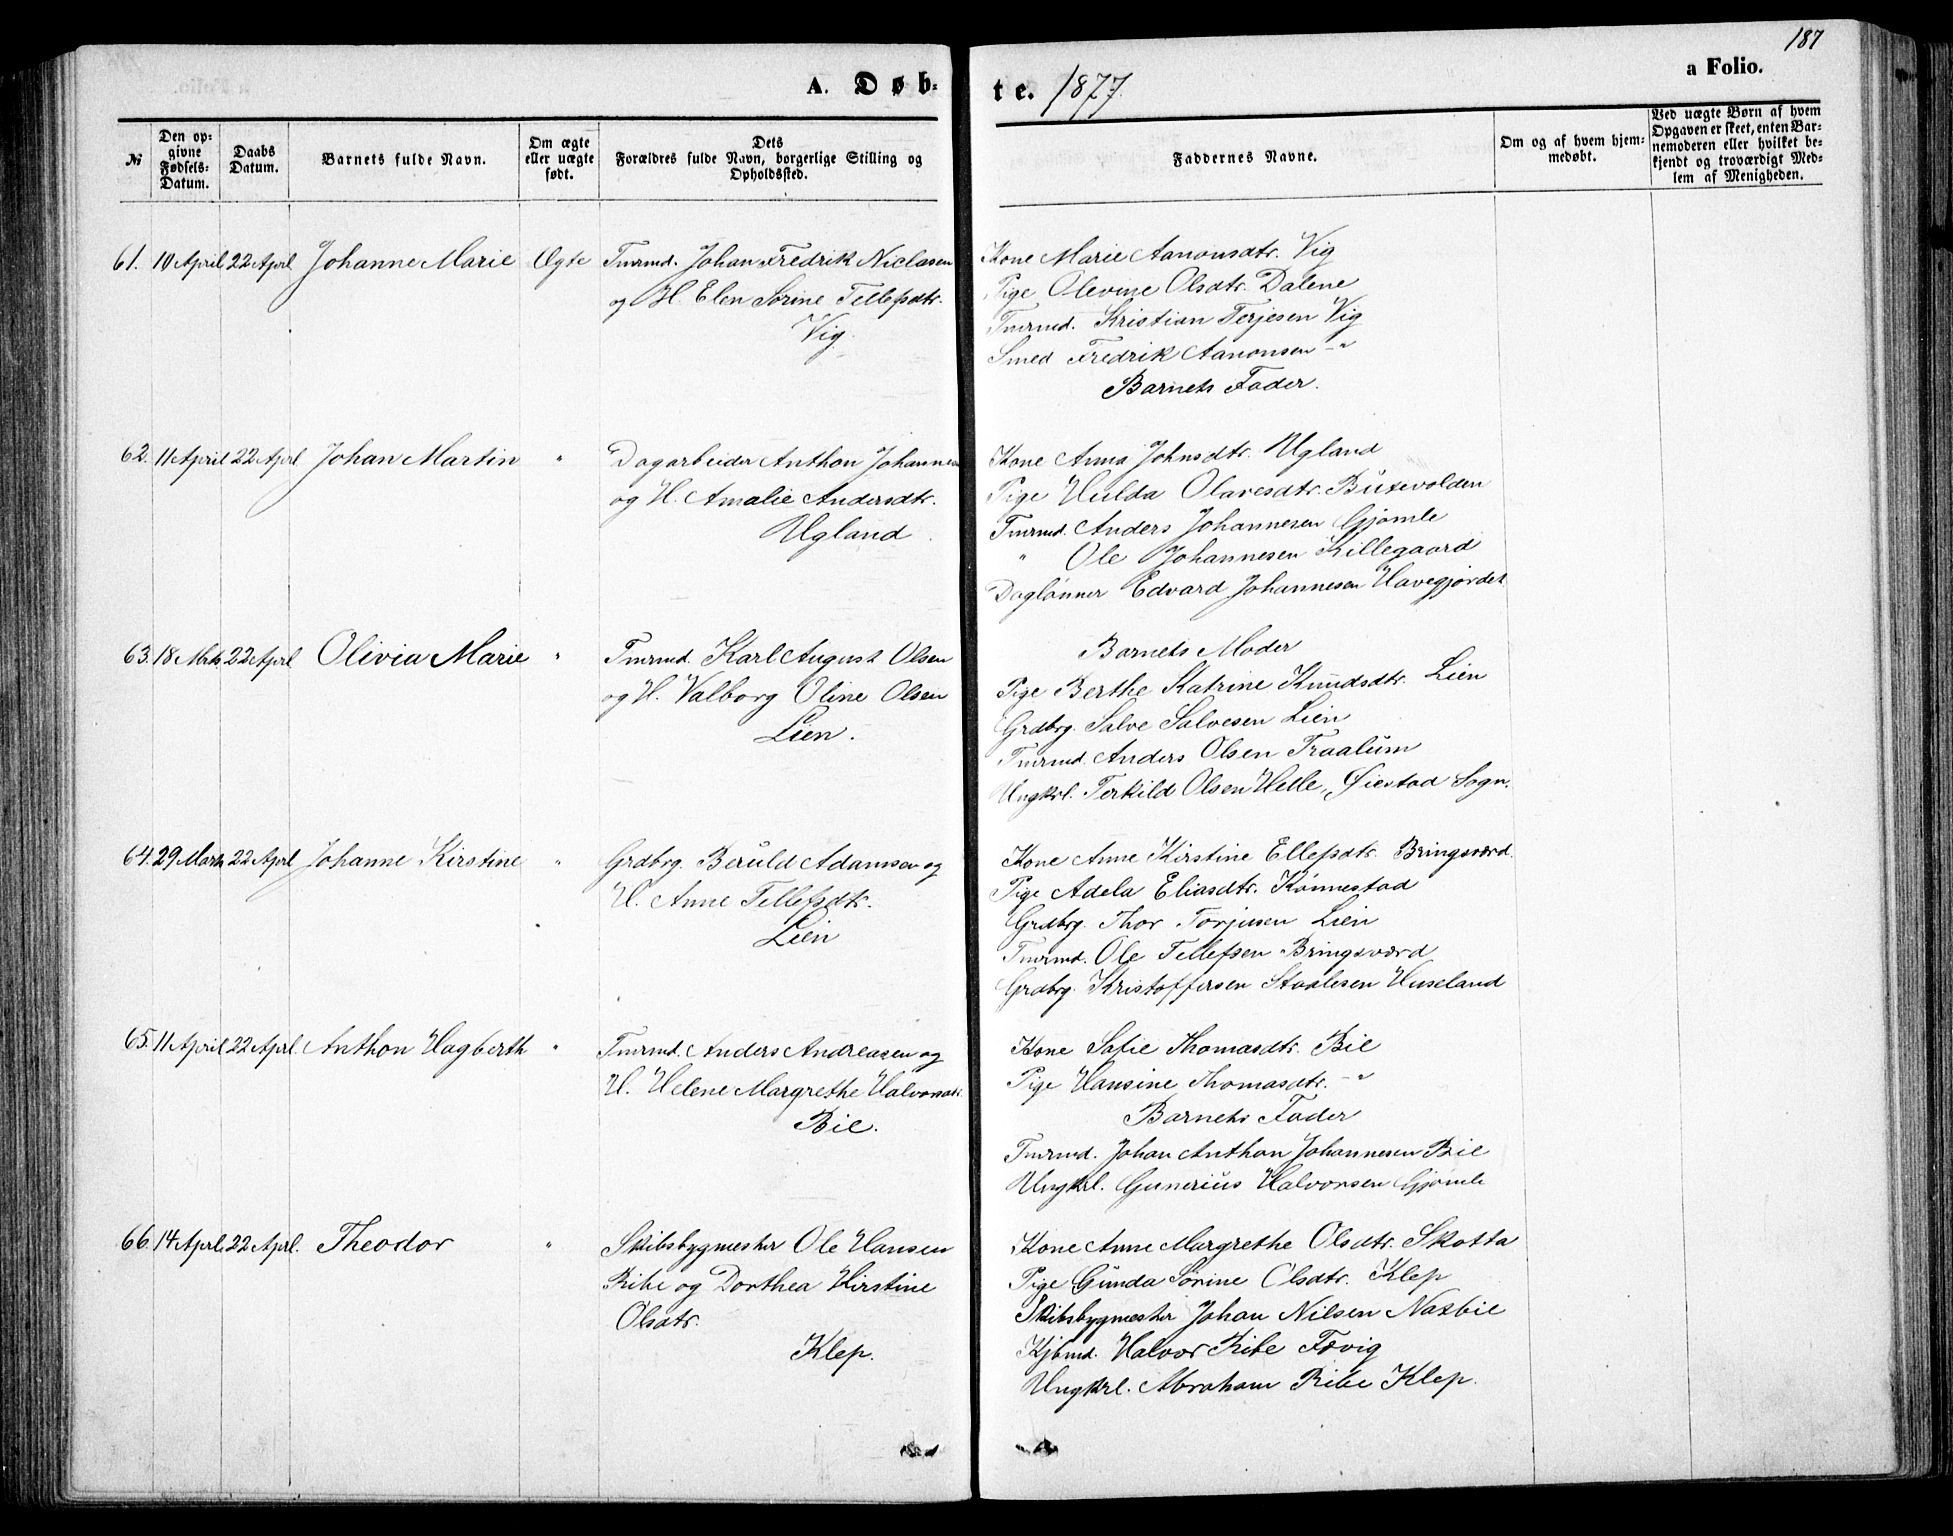 187
a Folio.
A. Døb-
te. 1877.
№
Den op-
givne
Fødsels-
Datum.
Daabs
Datum.
Barnets fulde Navn.
Om ægte
eller uægte
født.
Dets
Forældres fulde Navn, borgerlige Stilling og
Opholdssted.
Faddernes Navne.
Om og af hvem hjem-
medøbt.
Ved uægte Børn af hvem
Opgaven er skeet, enten Bar-
nemoderen eller hvilket be-
kjendt og troværdigt Med-
lem af Menigheden.
61. 10 April 22 April Johanne Marie Ægte Tmrmd. Johan Fredrik Niclasen
og H. Elen Serine Tellefsdtr.
Vig.
Kone Marie Aanonsdtr. Vig
Pige Olevine Olsdtr. Dalene
Tmrmd. Kristian Terjesen Vig
Smed Fredrik Aanonsen -"
Barnets Fader.
62. 11 April 22 April Johan Martin " Dagarbeider Anthon Johannesen
og H. Amalie Andersdtr.
Ugland
Kone Anna Johnsdtr. Ugland
Pige Hulda Olavesdtr. Buxevolden
Tmrmd. Anders Johannesen Gjømle
" Ole Johannesen Killegaard
Daglønner Edvard Johannesen Havegjerdet
63. 18 Mrts 22 Aprl Olivia Marie " Tmrmd. Karl August Olsen
og H. Valborg Oline Olsen
Lien.
Barnets Moder
Pige Berthe Katrine Knudsdtr. Lien
Grdbrg. Salve Salvesen Lien
Tmrmd. Anders Olsen Traalum
Ungkrl. Terkild Olsen Helle, Øiestad Sogn.
64. 29 Marts 22 Aprl Johanne Kirstine " Grdbrg. Beruld Adamsen og
H. Anne Tellefsdtr.
Lien
Kone Anne Kirstine Ellefsdtr. Bringsværd.
Pige Adela Eliasdtr. Rønnestad
Grdbrg. Thor Torjusen Lien
Tmrmd. Ole Tellefsen Bringsværd
Grdbrg. Kristoffersen Staalesen Huseland
65. 11 April 22 Aprl. Anthon Hagberth " Tmrmd. Anders Andreasen og
H. Helene Margrethe Halvorsdtr.
Bie.
Kone Sofie Thomasdtr. Bie
Pige Hansine Thomasdtr. -"
Barnets Fader
Tmrmd. Johan Anthon Johannesen Bie
Ungkrl. Gunerius Halvorsen Gjømle
66. 14 Aprl. 22 Aprl. Theodor " Skibsbygmester Ole Hansen
Ribe og Dorthea Kirstine
Olsdtr.
Klep.
Kone Anne Margrethe Olsdtr. Skotta
Pige Gunda Sørine Olsdtr. Klep
Skibsbygmester Johan Nilsen Naxbie
Kjbmd. Halvor Ribe Fevig
Ungkrl. Abraham Ribe Klep.